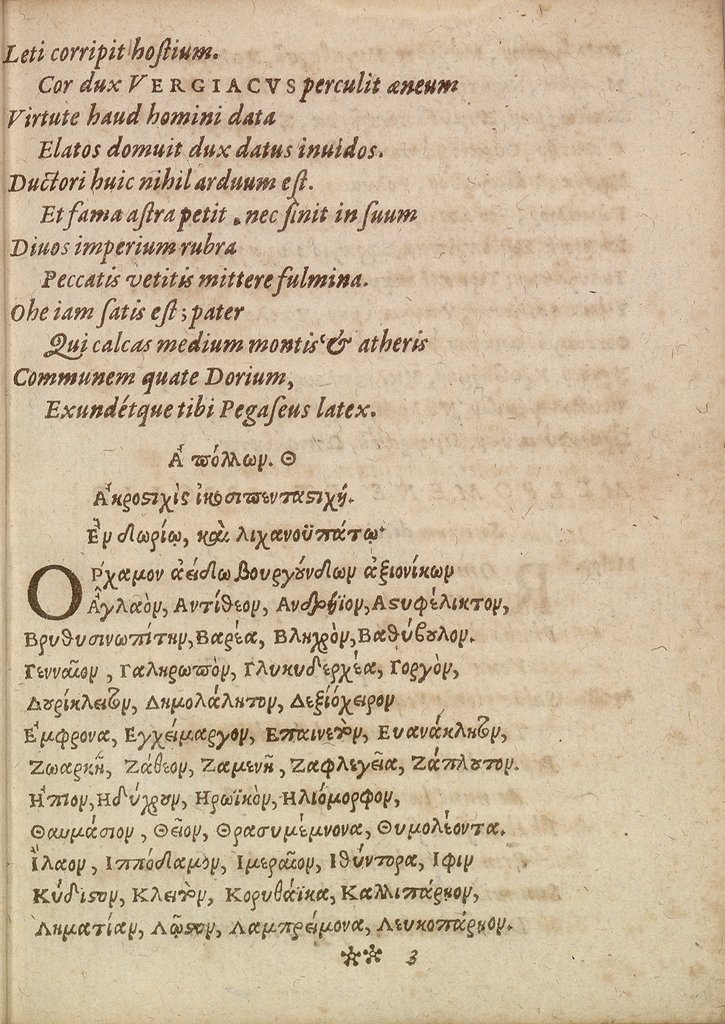 Leti corripit hoſtium.
Cor dux VERGIACVS perculit æneum
Virtute haud homini data
Elatos domuit dux datus inuidos.
Ductori huic nihil arduum eſt.
Et fama aſtra petit, nec ſinit in ſuum
Diuos imperium rubra
Peccatis vetitis mittere fulmina.
Ohe iam ſatis eſt; pater
Qui calcas medium montis & ætheris
Communem quate Dorium,
Exundétque tibi Pegaſeus latex.
Ἀπόλλων. Θ
Ἀκροϛιχὶς ἰκοσιπενταϛιχή.
Ἐν δωρίῳ, καὶ λιχανοϋπάτῳ
ΟΡχαμον ἀείδω Βουργούνδων ἀξιονίκων
Ἀγλαὸν, Αντίθεον, Ανδρήϊον, Αϛυφέλικτον,
Βριθυσινωπίτην, Βαρέα, Βληχρὸν, Βαθύβουλον.
Γενναῖον, Γαληρωπὸν, Γλυκυδερχέα, Γοργὸν,
Δουρίκλειτον, Δημολάλητον, Δεξιόχειρον
Ἐμφρονα, Εγχείμαργον, Επαινετὸν, Ευανάκλητον,
Ζωαρκῆ, Ζάθεον, Ζαμενῆ, Ζαφλεγεῖα, Ζάπλουτον.
Ηπιον, Ηδύχρουν, Ηρωϊκὸν, Ηλιόμορφον,
Θαυμάσιον, Θεῖον, Θρασυμέμνονα, Θυμολέοντα.
Ἵλαον, Ιππόδαμον, Ιμεραῖον, Ιθύντορα, Ιφιν
Κύδιϛον, Κλειτὸν, Κορυθάϊκα, Καλλιπάρῃον,
Ληματίαν, Λῷϛον, Λαμπρείμονα, Λευκοπάρῃον.
** 3